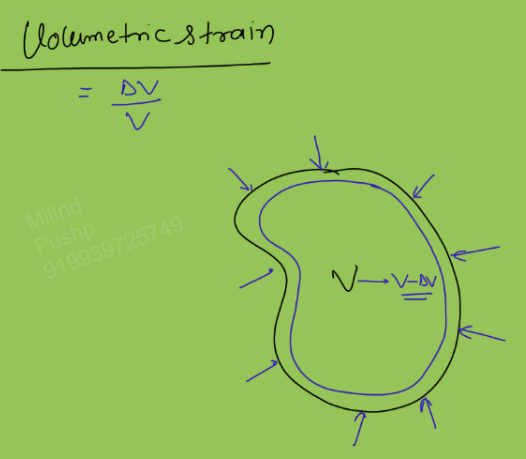 Volumetric strain
= ΔV
V
Milind
Pushp
919939725749
V → V-ΔV